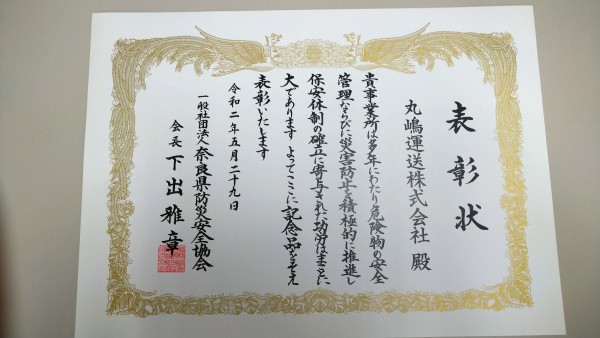 表彰状
丸嶋運送株式会社 殿
貴事業所は多年にわたり危険物の安全
管理ならびに災害防止を積極的に推進し
保安体制の確立に寄与された功労はまことに
大であります よってここに記念品をそえ
表彰いたします
令和二年五月二十九日
一般社団法人奈良県防災安全協会
会長 下出雅章